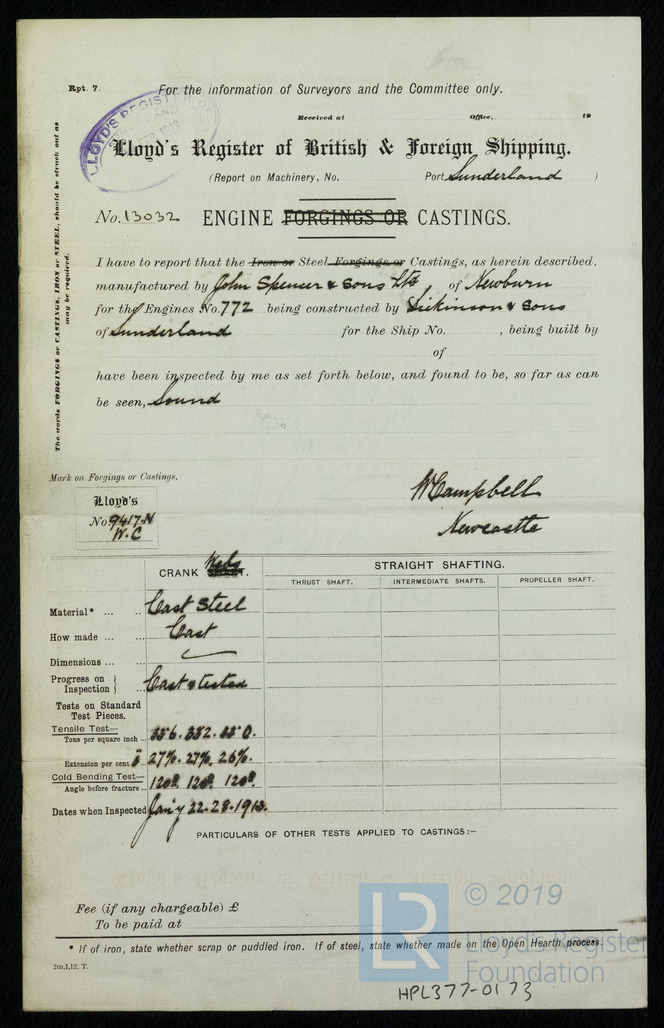 Rpt. 7.
For the information of Surveyors and the Committee only.
LLOYD'S REGISTER OF
Received at Office, 19
Lloyd's Register of British & Foreign Shipping.
(Report on Machinery, No. Port Sunderland )
No. 13032 ENGINE FORGINGS OR CASTINGS.
The words FORGINGS or CASTINGS, IRON or STEEL, should be struck out as
may be required.
I have to report that the Iron or Steel Forgings or Castings, as herein described,
manufactured by John Spencer & Sons Ltd, of Newburn
for the Engines No. 772 being constructed by Dickinson & Sons
of Sunderland for the Ship No. , being built by
of
have been inspected by me as set forth below, and found to be, so far as can
be seen, Sound
Mark on Forgings or Castings.
Lloyd's
No. 9417.N
W.C
W Campbell
Newcastle
CRANK Webs
STRAIGHT SHAFTING.
THRUST SHAFT. INTERMEDIATE SHAFTS. PROPELLER SHAFT.
Material* ... ... Cast Steel
How made ... ... Cast
Dimensions ... ...
Progress on Inspection } ... Cast & tested
Tests on Standard
Test Pieces.
Tensile Test—
Tons per square inch ... 35.6. 35.2. 35.0.
Extension per cent 27%. 27%. 26%.
Cold Bending Test—
Angle before fracture 120°. 120°. 120°.
Dates when Inspected Jan'y 22-28-1913.
PARTICULARS OF OTHER TESTS APPLIED TO CASTINGS:—
Fee (if any chargeable) £
To be paid at
* If of iron, state whether scrap or puddled iron. If of steel, state whether made on the Open Hearth process.
2m,1,12. T.
LR
© 2019
Lloyd's Register
Foundation
HPL377-0173